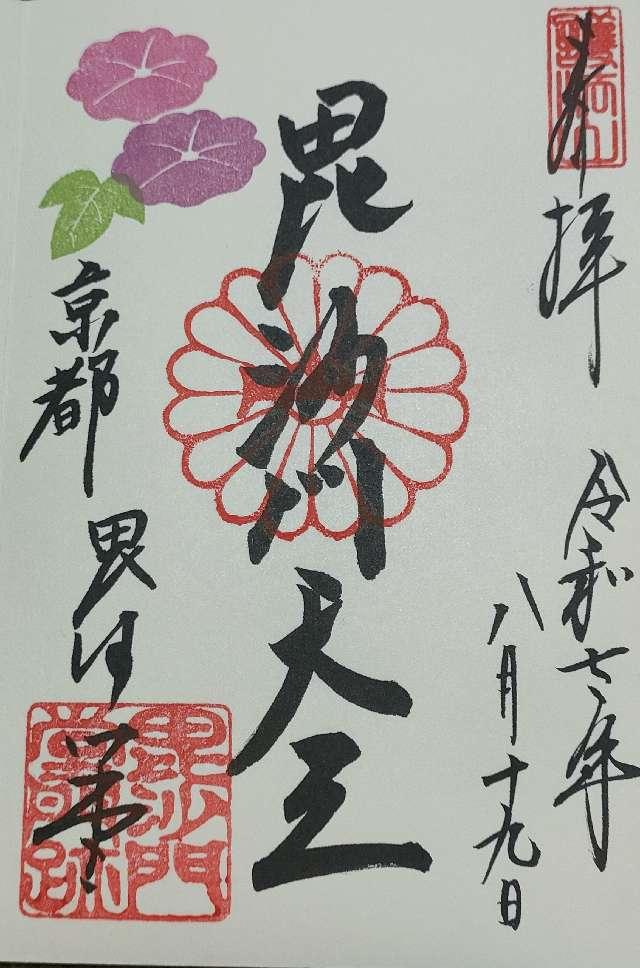 奉拝
令和七年
八月十九日
毘沙门天王
京都
毘沙门堂